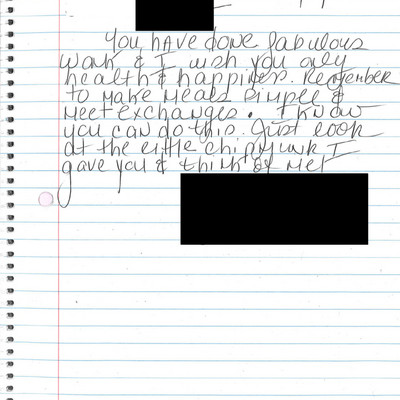 You have done fabulous
work & I wish you only
health & happiness. Remember
to make meals simple &
meet exchanges. I know
you can do this. Just look
at the little chipmunk I
gave you & think of me!